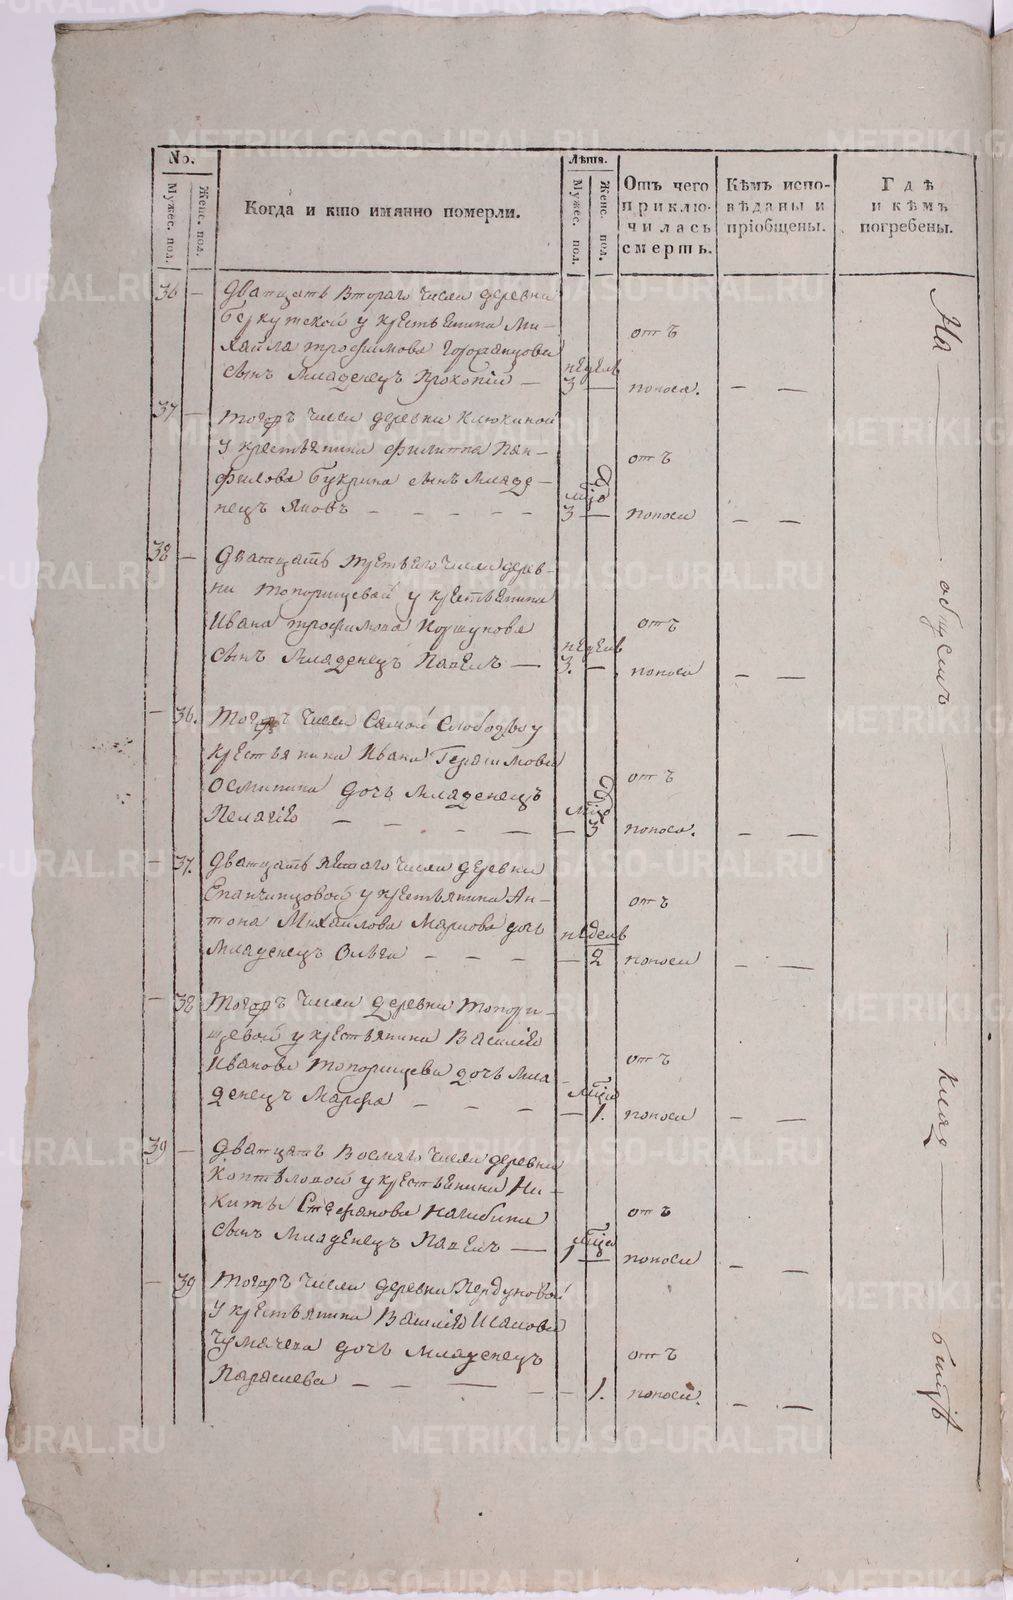 No.
Мужес. пол.
Женс. пол.
Когда и кто имянно померли.
Лѣта.
Мужес. пол.
Женс. пол.
Отъ чего
приклю-
чилась
смерть.
Кѣмъ испо-
вѣданы и
прiобщены.
Гдѣ
и кѣмъ
погребены.
36 — Дватцать втораго числа деревни
у крестьянина Ми-
хайла Трофимова
сынъ младенецъ Прокопiй —
недель
3 —
отъ
поноса. — —
37 — Тогожъ числа деревни Клюкиной
у крестьянина Филиппа Пан-
филова Букрина сынъ младе-
нецъ Яковъ — — — — —
3 —
отъ
поноса — —
38 — Дватцать третьяго числа дерев-
ни Топорищевой у крестьянина
Ивана Трофимова Коршунова
сынъ младенецъ Павелъ —
недель
3. —
отъ
поноса — —
— 36. Тогожъ числа Самой Слободы у
крестьянина Ивана Герасимова
Осминина дочь младенецъ
Пелагiя — — — — —
3
отъ
поноса. — —
— 37. Дватцать пятаго числа деревни
Епанчинцовой у крестьянина Ан-
тона Михайлова Маркова дочь
младенецъ Ольга — — — —
недель
2
отъ
поноса — —
— 38 Тогожъ числа деревни Топори-
щевой у крестьянина Василiя
Иванова Топорищева дочь мла-
денецъ Марфа — — — — —
1.
отъ
поноса — —
39 — Дватцать восмаго числа деревни
Коптѣловой у крестьянина Ни-
киты Стефанова Нагибина
сынъ младенецъ Павелъ —
1 —
отъ
поноса — —
— 39 Тогожъ числа деревни Пердуновой
у крестьянина Василiя Исакова
Чумачева дочь младенецъ
Параскева — — — — —
1.
отъ
поноса. — —
На — общемъ — клад — бищѣ
METRIKI.GASO-URAL.RU